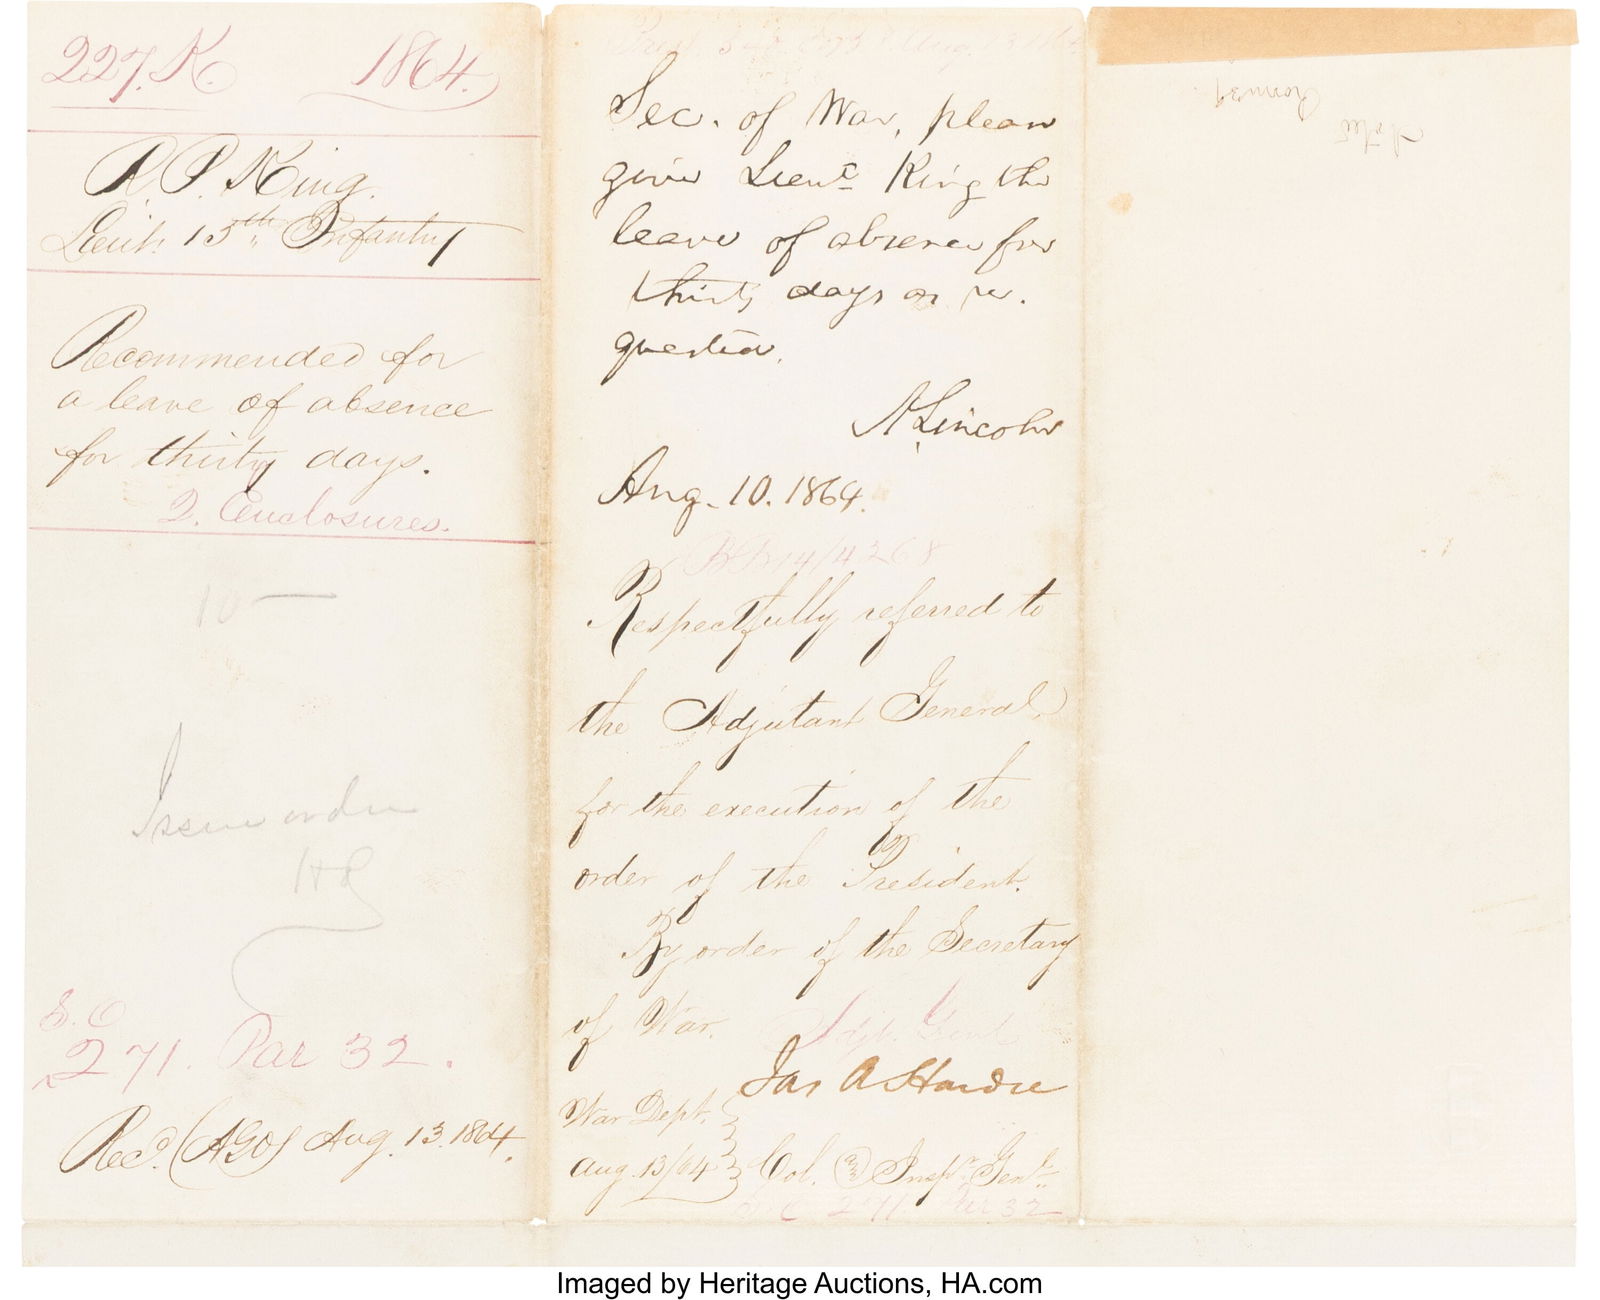 227. K. 1864.
R. P. King.
Lieut. 15th Infantry
Recommended for
a leave of absence
for thirty days.
2. Enclosures.
10 —
Issue order
S. O.
271. Par 32.
Recd. (AGO) Aug. 13. 1864.
Aug. 13
Sec. of War, please
give Lieut. King the
leave of absence for
thirty days as re-
quested.
A. Lincoln
Aug. 10. 1864.
4268
Respectfully referred to
the Adjutant General,
for the execution of the
order of the President.
By order of the Secretary
of War.
Adjt. Genl
Jas A Hardie
War Dept.
Aug. 13/64
Col. & Inspr. Genl.
S. O. 271. Par 32
Noted
Imaged by Heritage Auctions, HA.com